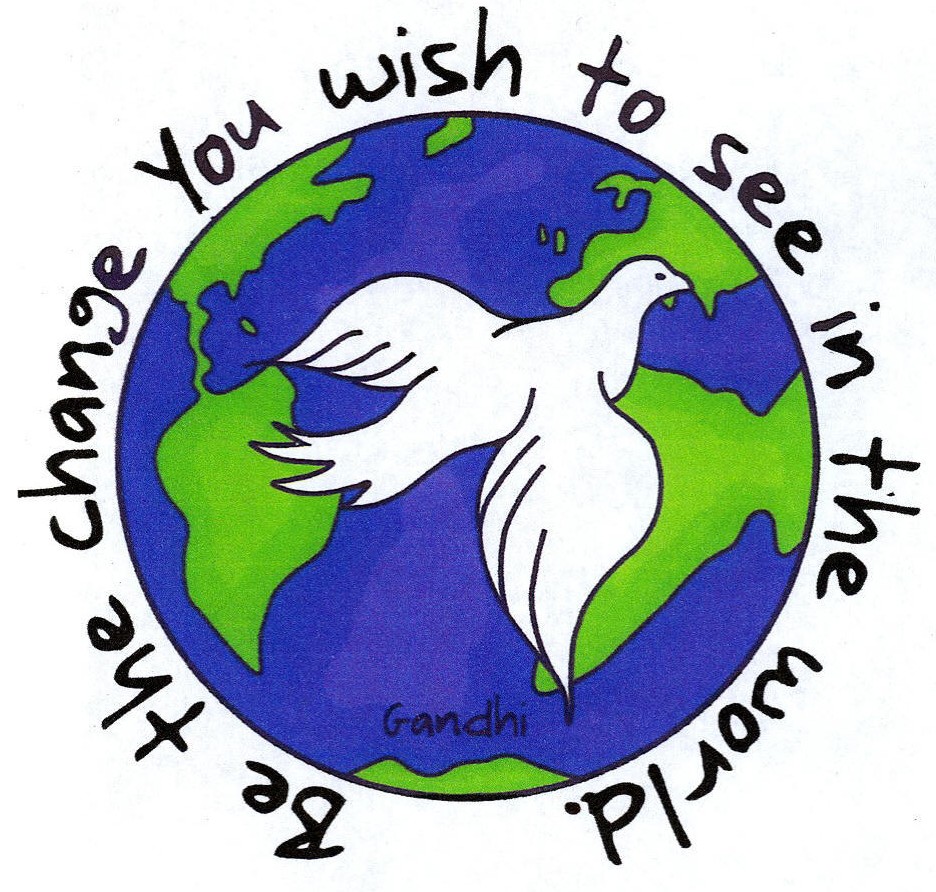 Be the change You wish to see in the world.
Gandhi